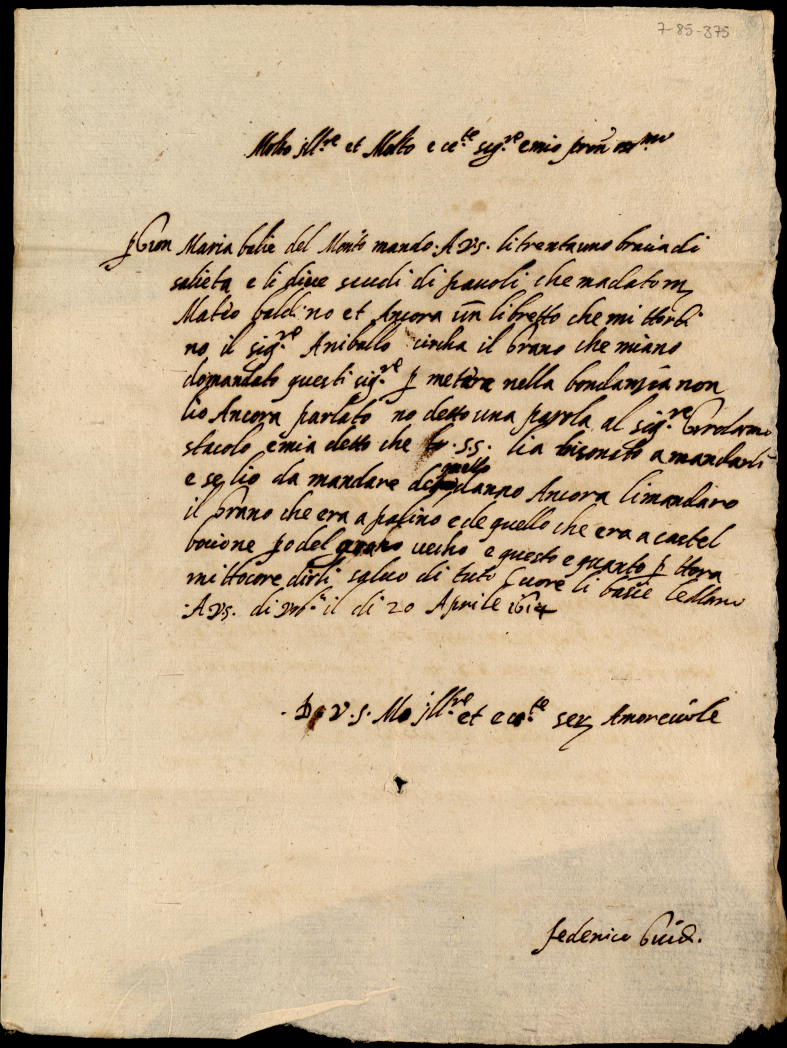 7-85-375
Molto jll.re et Molto ecc.te sig.re e mio
Maria del Monte mando. A vs. li trentauno bracia di
salieta e li diece scudi di pauoli che madatomi
Mateo baldino et Ancora un libretto che mi
no il sig.re Aniballo circha il grano che miano
domandato questi sig.re p metere nella bondanzia non
lio Ancora parlato no detto una parola al sig.re Girolamo
stacolo e mia detto che .s.s. lia bisonato a mandarli
e se lio da mandare quello Ancora li mandaro
il grano che era a palino e de quello che era a castel
bocione del vecho e questo e quanto p
mi ttocore dirli saluo di tuto Cuore li bacie le Mano
.A vs. di il di 20 Aprile 1614
. D. V. S. Mo jll.re et ecc.te ser Amoreuole
federico